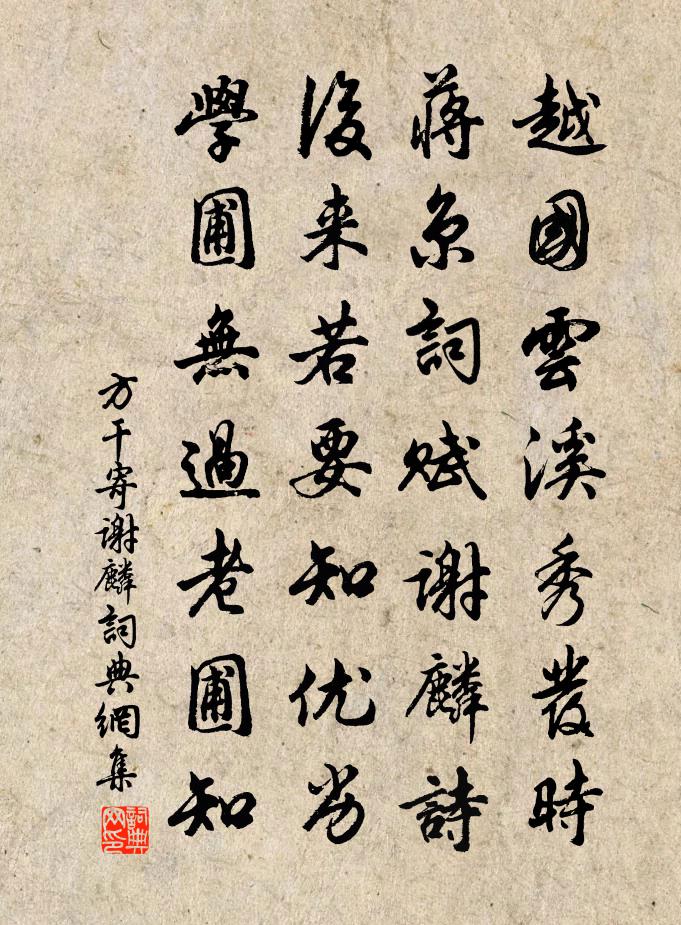 越國雲溪秀發時
蔣京詞賦謝麟詩
後来若要知优劣
學圃無過老圃知
方干寄謝麟詞典網集
詞典网印